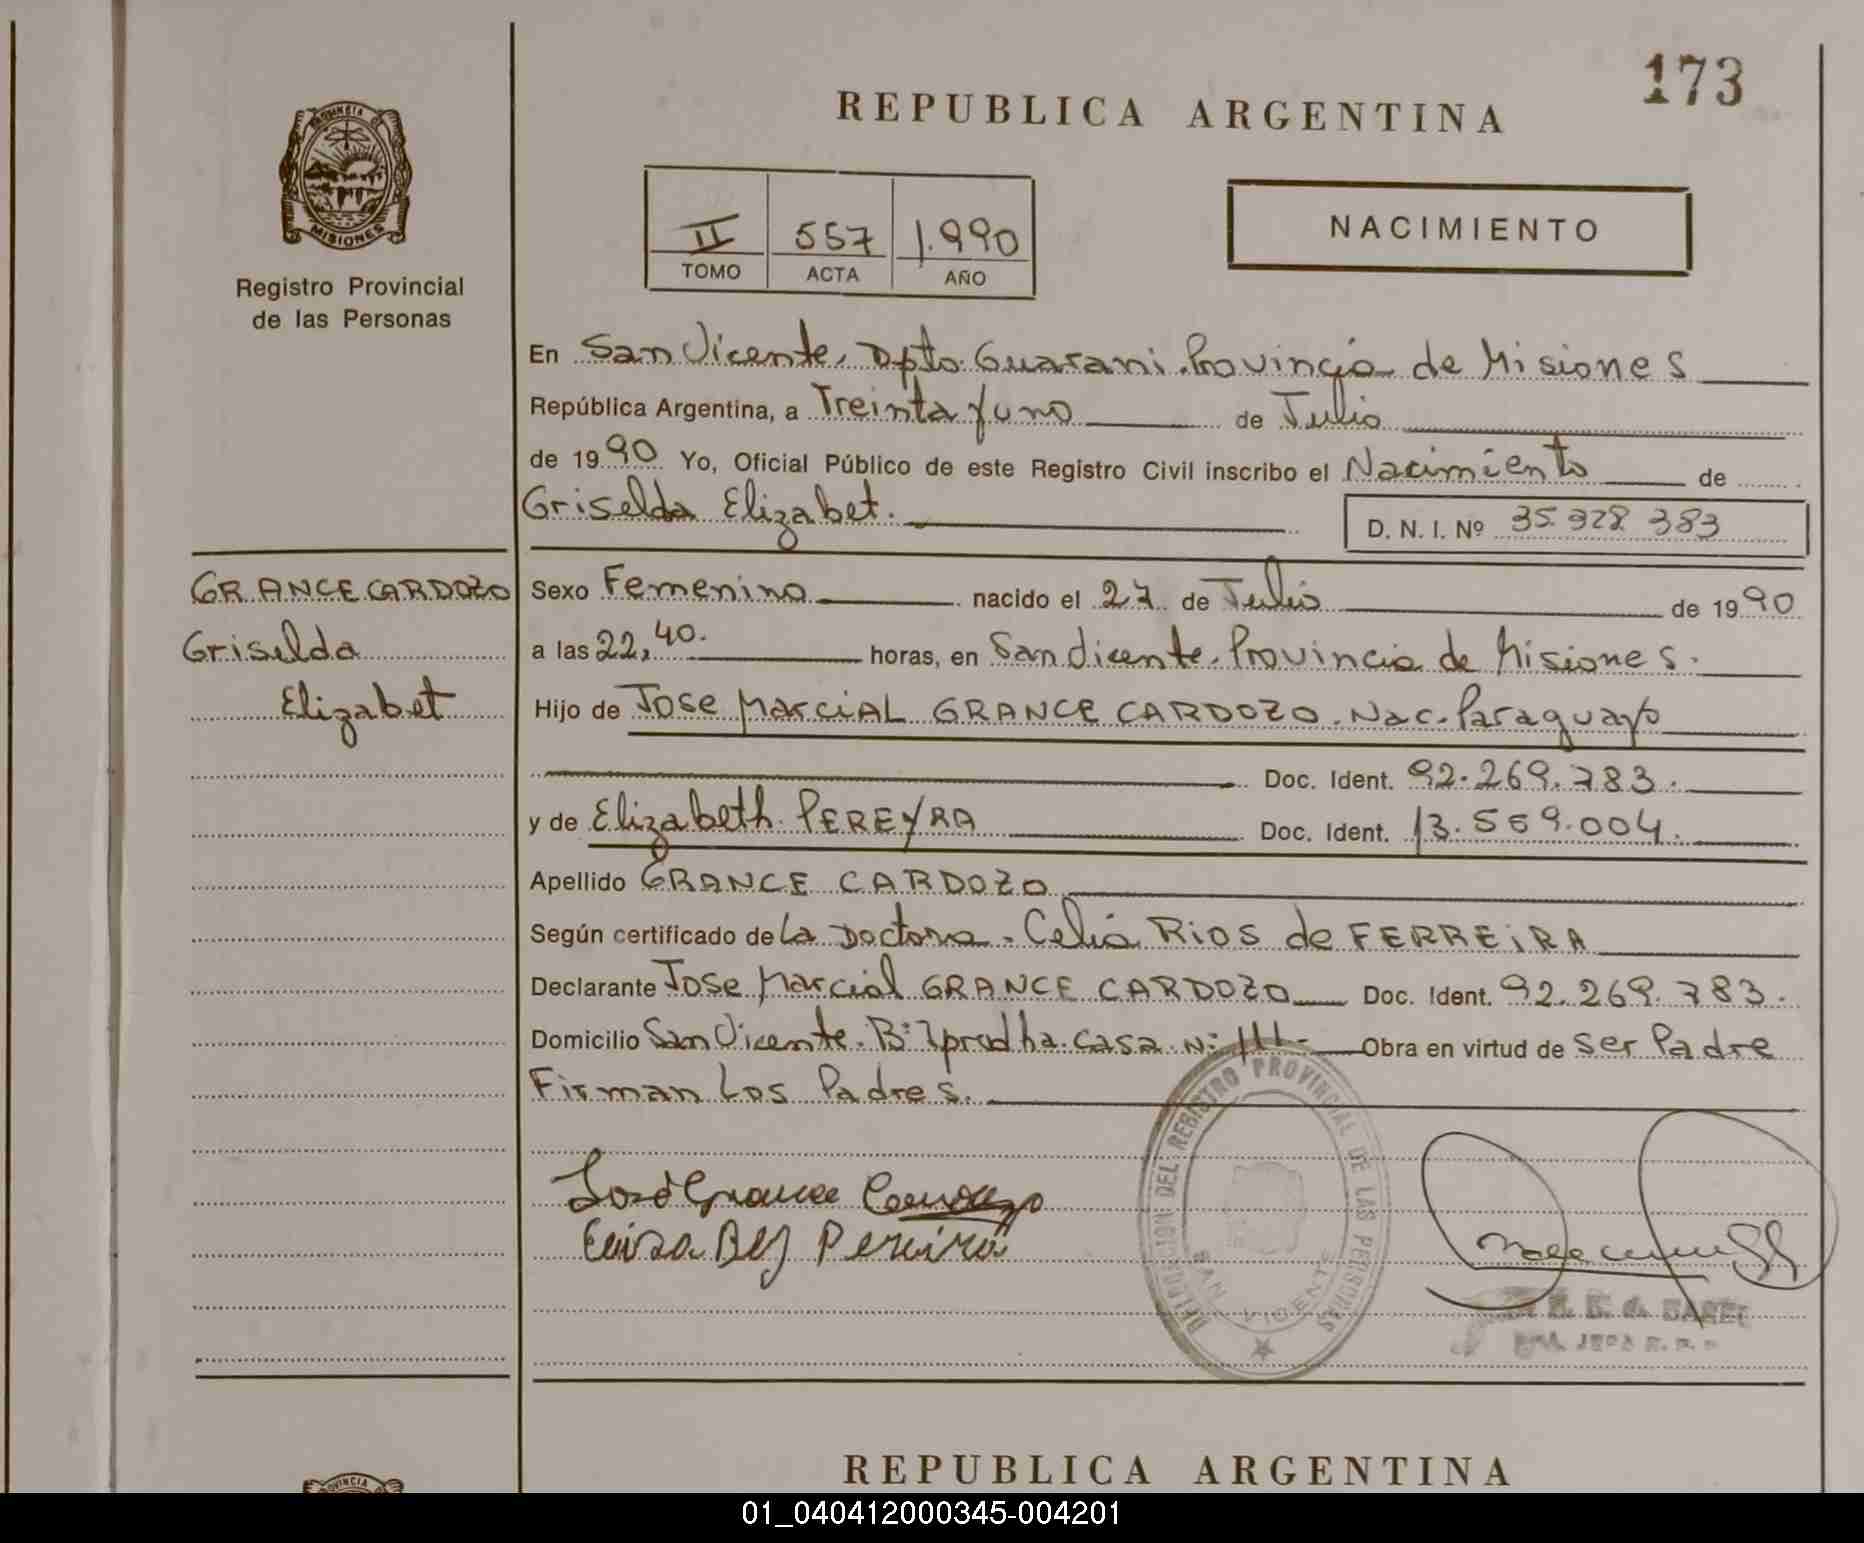 173
REPUBLICA ARGENTINA
PROVINCIA D
MISIONES
Registro Provincial
de las Personas
II 557 1.990
TOMO ACTA AÑO
NACIMIENTO
En San Vicente, Dpto. Guarani. Provincia de Misiones
República Argentina, a Treinta y uno de Julio
de 1990 Yo, Oficial Público de este Registro Civil inscribo el Nacimiento de
Griselda Elizabet.
D. N. I. Nº 35.328 383
GRANCE CARDOZO
Griselda
Elizabet
Sexo Femenino nacido el 27 de Julio de 1990
a las 22,40. horas, en San Vicente. Provincia de Misiones.
Hijo de Jose Marcial GRANCE CARDOZO. Nac. Paraguayo
Doc. Ident. 92.269.783.
y de Elizabeth PEREYRA Doc. Ident. 13.559.004.
Apellido GRANCE CARDOZO
Según certificado de La Doctora. Celia Rios de FERREIRA
Declarante Jose Marcial GRANCE CARDOZO Doc. Ident. 92.269.783.
Domicilio San Vicente. Bº Casa Nº 111- Obra en virtud de ser Padre
Firman Los Padres.
José Grance Cardozo
Pereira
DELEGACION DEL REGISTRO PROVINCIAL DE LAS PERSONAS
SAN VICENTE
REPUBLICA ARGENTINA
OVINCIA
01_040412000345-004201